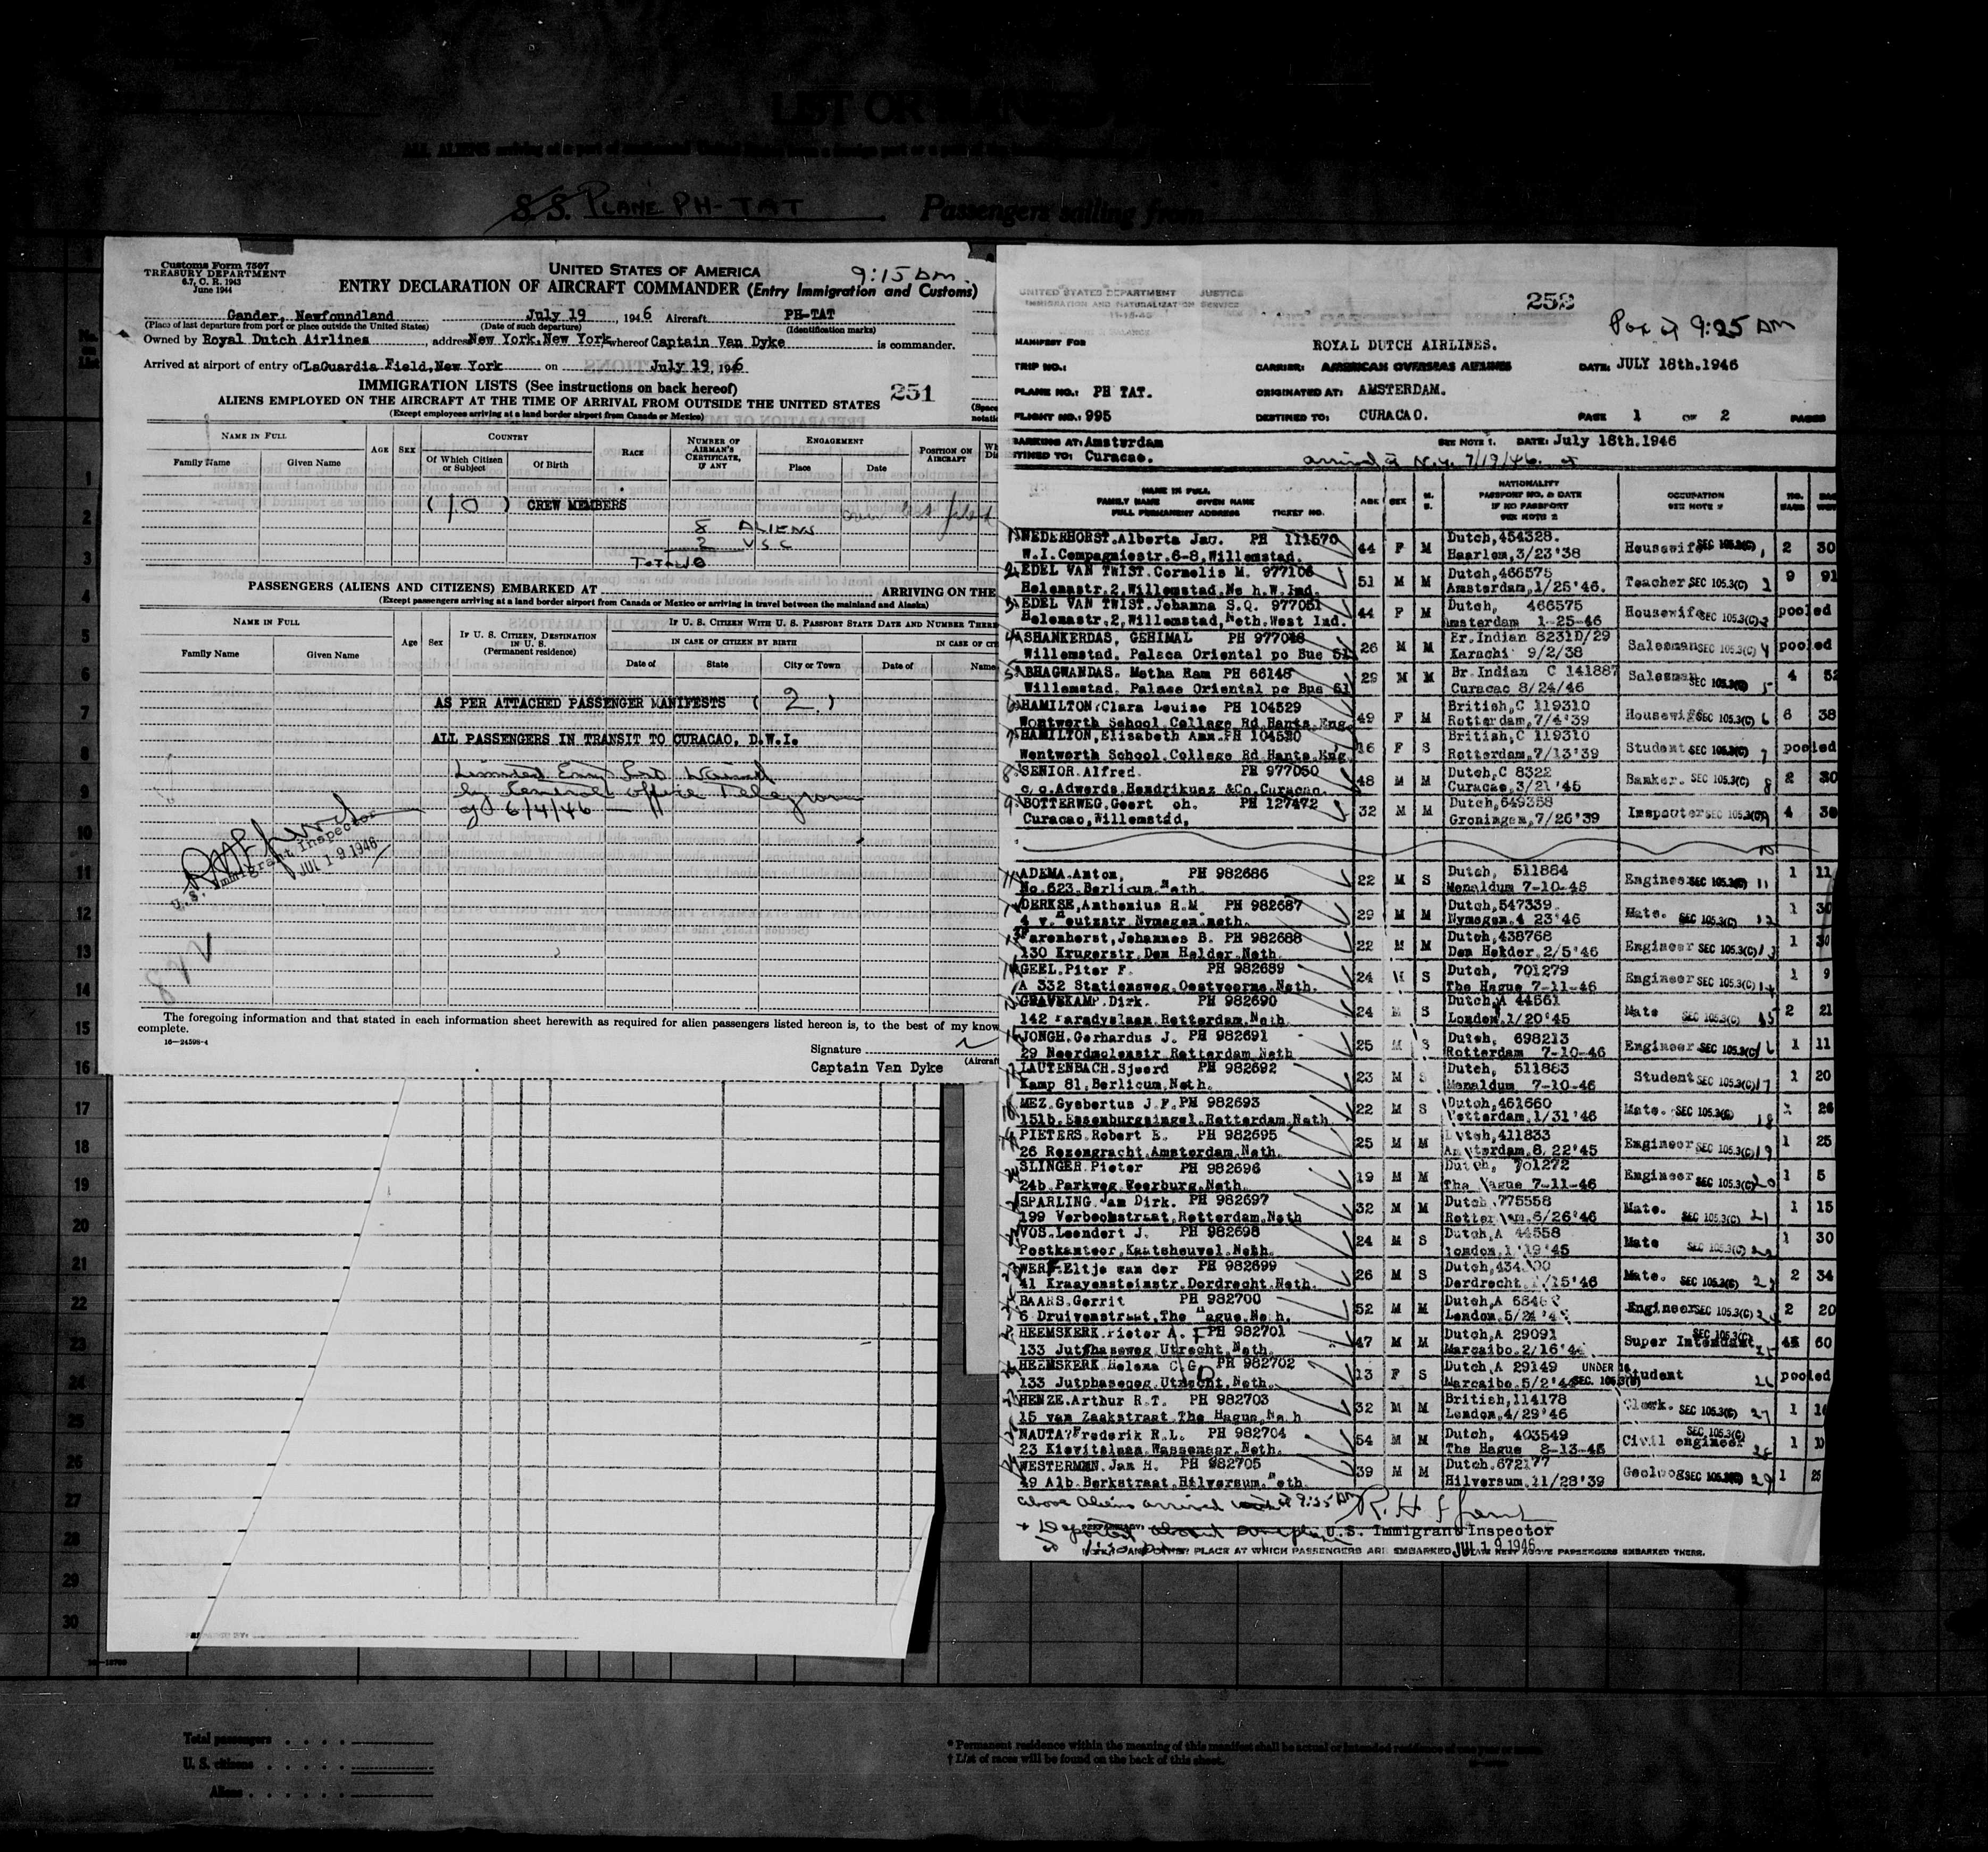 LIST OR MANIFEST
S.S. PLANE PH-TAT Passengers sailing from
Customs Form 7507
TREASURY DEPARTMENT
6.7, C. R. 1943
June 1944
UNITED STATES OF AMERICA 9:15 AM
ENTRY DECLARATION OF AIRCRAFT COMMANDER (Entry Immigration and Customs)
Gander, Newfoundland July 19, 1946 Aircraft PH-TAT
(Place of last departure from port or place outside the United States) (Date of such departure) (Identification marks)
Owned by Royal Dutch Airlines, address New York, New York, whereof Captain Van Dyke is commander.
Arrived at airport of entry of LaGuardia Field, New York on July 19, 1946
IMMIGRATION LISTS (See instructions on back hereof)
ALIENS EMPLOYED ON THE AIRCRAFT AT THE TIME OF ARRIVAL FROM OUTSIDE THE UNITED STATES 251
(Except employees arriving at a land border airport from Canada or Mexico)
NAME IN FULL AGE SEX COUNTRY RACE NUMBER OF AIRMAN'S CERTIFICATE, IF ANY ENGAGEMENT POSITION ON AIRCRAFT
Family Name Given Name Of Which Citizen or Subject Of Birth Place Date
(10) CREW MEMBERS
8 ALIENS
2 USC
TOTAL 10
PASSENGERS (ALIENS AND CITIZENS) EMBARKED AT ARRIVING ON THE
(Except passengers arriving at a land border airport from Canada or Mexico or arriving in travel between the mainland and Alaska)
NAME IN FULL Age Sex IF U. S. CITIZEN, DESTINATION IN U. S. (Permanent residence) IF U. S. CITIZEN WITH U. S. PASSPORT STATE DATE AND NUMBER THERE
IN CASE OF CITIZEN BY BIRTH IN CASE OF CIT
Family Name Given Name Date of State City or Town Date of Name
AS PER ATTACHED PASSENGER MANIFESTS (2)
ALL PASSENGERS IN TRANSIT TO CURACAO, D.W.I.
by Central office Telegram
of 6/4/46
U.S. Immigrant Inspector
JUL 19 1946
The foregoing information and that stated in each information sheet herewith as required for alien passengers listed hereon is, to the best of my know
complete.
16—24598-4
Signature
Captain Van Dyke (Aircraft
UNITED STATES DEPARTMENT JUSTICE
IMMIGRATION AND NATURALIZATION SERVICE
252
9:25 AM
MANIFEST FOR ROYAL DUTCH AIRLINES.
TRIP NO.: CARRIER: AMERICAN OVERSEAS AIRLINES DATE: JULY 18th.1946
PLANE NO.: PH TAT. ORIGINATED AT: AMSTERDAM.
FLIGHT NO.: 995 DESTINED TO: CURACAO. PAGE 1 OF 2 PAGES
BARKING AT: Amsterdam SEE NOTE 1. DATE: July 18th.1946
TINED TO: Curacao. arrived at N.Y. 7/19/46.
NAME IN FULL
FAMILY NAME GIVEN NAME
FULL PERMANENT ADDRESS TICKET NO. AGE SEX M. S. NATIONALITY PASSPORT NO. & DATE IF NO PASSPORT SEE NOTE 2 OCCUPATION SEE NOTE 3 NO. BAGS
1 NEDERHORST.Alberta Jac. PH 111570 44 F M Dutch,454328. Housewife SEC 105.3(C) 1 2 30
W.I.Compagniestr.6-8,Willemstad. Haarlem,3/23'38
2 EDEL VAN TWIST.Cornelis M. 977106 51 M M Dutch,466575 Teacher SEC 105.3(C) 2 9 91
Helenastr.2,Willemstad,Ne h.W.Ind. Amsterdam,1/25'46.
3 EDEL VAN TWIST.Johanna S.Q. 977051 44 F M Dutch, 466575 Housewife SEC 105.3(C) 3 pooled
Helenastr.2,Willemstad,Neth.West Ind. Amsterdam 1-25-46
4 SHANKERDAS, GEHIMAL PH 977048 26 M M Br.Indian 8231D/29 Salesman SEC 105.3(C) 4 pooled
Willemstad. Palaca Oriental po Bus 51 Karachi 9/2/38
5 BHAGWANDAS. Metha Ram PH 66148 29 M M Br.Indian C 141887 Salesman SEC 105.3(C) 5 4 52
Willemstad. Palace Oriental po Bus 51 Curacao 8/24/46
6 HAMILTON,Clara Louise PH 104529 49 F M British,C 119310 Housewife SEC 105.3(C) 6 6 38
Wentworth School.College Rd.Hants.Eng. Rotterdam,7/4'39
7 HAMILTON,Elisabeth Ann.PH 104530 16 F S British,C 119310 Student SEC 105.3(C) 7 pooled
Wentworth School.College Rd.Hants.Eng. Rotterdam,7/13'39
8 SENIOR.Alfred. PH 977050 48 M M Dutch,C 8322 Banker. SEC 105.3(C) 8 2 30
c.o.Adwords.Hendrikusz &Co.Curacao. Curacao,3/21'45
9 BOTTERWEG.Geert oh. PH 127472 32 M M Dutch,649358 Inspector SEC 105.3(C) 9 4 30
Curacao,Willemstad, Groningen,7/26'39
10
11 ADEMA.Anton, PH 982686 22 M S Dutch, 511884 Engineer SEC 105.3(C) 11 1 11
No.623.Berlicum.Neth. Menaldum 7-10-46
12 DERKSE,Anthonius R.M PH 982687 29 M M Dutch,547339. Mate. SEC 105.3(C) 12 1 30
4 v.Heutzstr.Nymegen neth. Nymegen.4 23'46
13 arenhorst,Johannes B. PH 982688 22 M M Dutch,438768 Engineer SEC 105.3(C) 13 1 30
130 Krugerstr.Den Helder.Neth. Den Helder.2/5'46
14 GEEL.Piter F. PH 982689 24 M S Dutch, 701279 Engineer SEC 105.3(C) 14 1 9
A 332 Stationsweg.Oostvoorne.Neth. The Hague 7-11-46
15 GRAVEKAMP.Dirk. PH 982690 24 M S Dutch,A 44561 Mate SEC 105.3(C) 15 2 21
142 Paradyslaan.Rotterdam.Neth. London.1/20'45
16 JONGH.Gerhardus J. PH 982691 25 M S Dutch, 698213 Engineer SEC 105.3(C) 16 1 11
29 Noordmolenstr Rotterdam Neth Rotterdam 7-10-46
17 LAUTENBACH.Sjoerd PH 982692 23 M S Dutch, 511883 Student SEC 105.3(C) 17 1 20
Kamp 81,Berlicum.Neth. Menaldum 7-10-46
18 MEZ.Gysbertus J.F.PH 982693 22 M S Dutch,461660 Mate. SEC 105.3(C) 18 26
151b.Essenburgsingel.Rotterdam.Neth Rotterdam.1/31'46
19 PIETERS.Robert E. PH 982695 25 M M Dutch,411833 Engineer SEC 105.3(C) 19 1 25
26 Rozengracht.Amsterdam.Neth. Amsterdam.8,22'45
20 SLINGER.Pieter PH 982696 19 M M Dutch, 701272 Engineer SEC 105.3(C) 20 1 5
24b.Parkweg.Voorburg.Neth. The Hague 7-11-46
21 SPARLING.Jan Dirk. PH 982697 32 M M Dutch 775558 Mate. SEC 105.3(C) 21 1 15
199 Verboomstraat.Rotterdam.Neth Rotterdam.6/26'46
22 VOS.Leendert J. PH 982698 24 M S Dutch,A 44558 Mate SEC 105.3(C) 22 1 30
Postkantoor.Kaatsheuvel.Neth. London.1'19'45
23 WERF.Eltje van der PH 982699 26 M S Dutch,434 00 Mate. SEC 105.3(C) 23 2 34
41 Kraayensteinstr.Dordrecht.Neth. Dordrecht. /15'46
BAARS.Gerrit PH 982700 52 M M Dutch,A Engineer SEC 105.3(C) 24 2 20
6 Druivenstraat.The Hague.Neth. London.5/24'4
HEEMSKERK.Pieter A. F PH 982701 47 M M Dutch,A 29091 Super Intendant SEC 105.3(C) 25 60
133 Jutphaseweg Utrecht.Neth. Marcaibo.2/16'44
HEEMSKERK Helena C G PH 982702 13 F S Dutch,A 29149 UNDER 16 SEC. 105.3(C) Student 26 pooled
133 Jutphaseweg.Utrecht,Neth. Marcaibo.5/2'44
HENZE.Arthur R.T. PH 982703 32 M M British,114178 Clerk. SEC 105.3(C) 27 1
15 van Zaakstraat.The Hague.Ne h London,4/29'46
NAUTA?Frederik R.L. PH 982704 54 M M Dutch, 403549 Civil engineer SEC 105.3(C) 28 1
23 Kievitslaan.Wassenaar.Neth. The Hague 8-13-45
WESTERMAN.Jan H. PH 982705 39 M M Dutch.672177 Geoloog SEC 105.3(C) 29 1 25
49 Alb.Berkstraat.Hilversum.Neth. Hilversum.11/28'39
above aliens arrived 9:25 AM
U.S. Immigrant Inspector
PLACE AT WHICH PASSENGERS ARE EMBARKED JUL 19 1946 ABOVE PASSENGERS EMBARKED THERE.
Total passengers
U. S. citizens
Aliens
* Permanent residence within the meaning of this manifest shall be actual or intended residence of one year or more.
† List of races will be found on the back of this sheet.